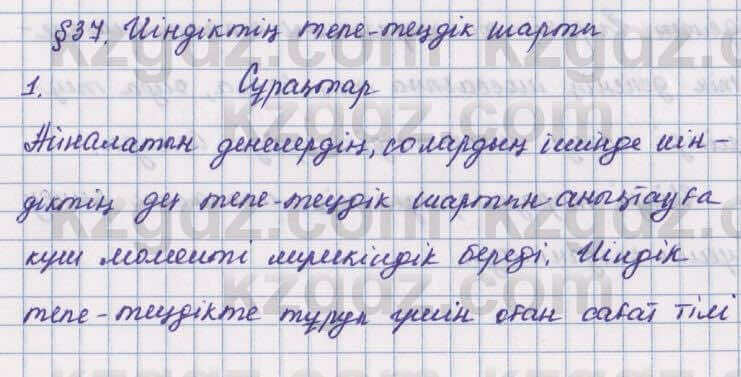 §37. Иіндіктің тепе-теңдік шарты
1. Сұрақтар
Айналатын денелердің, солардың ішінде иін-
діктің де тепе-теңдік шартын анықтауға
күш моменті мүмкіндік береді. Иіндік
тепе-теңдікте тұруы үшін оған сағат тілі